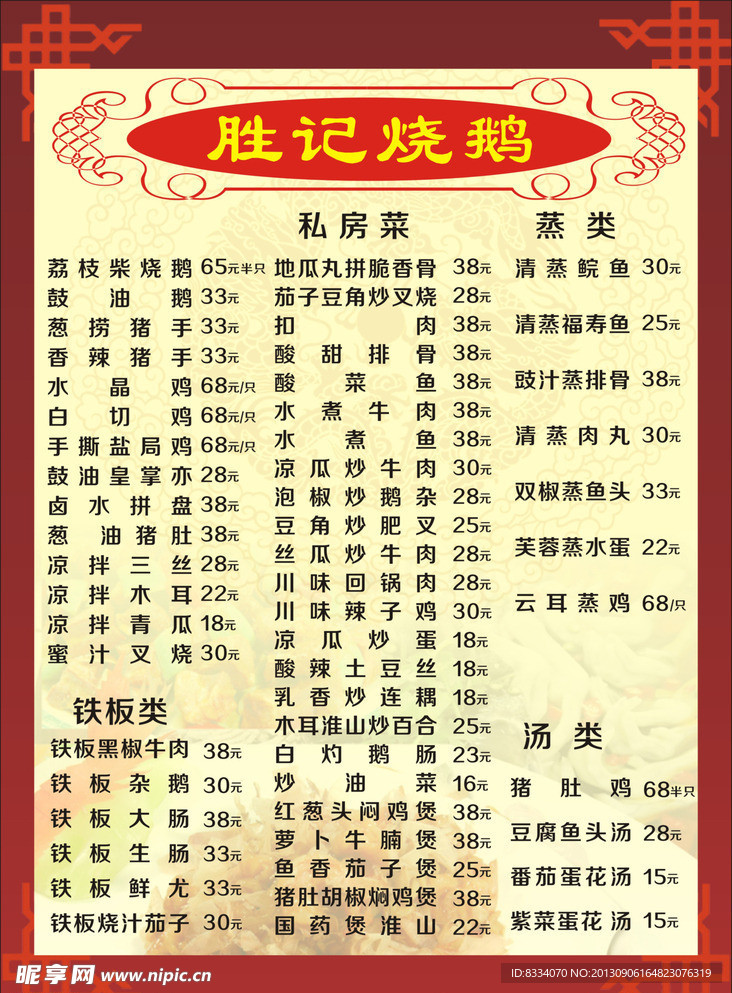 胜记烧鹅
荔枝柴烧鹅 65元半只
鼓油鹅 33元
葱捞猪手 33元
香辣猪手 33元
水晶鸡 68元/只
白切鸡 68元/只
手撕盐局鸡 68元/只
鼓油皇掌亦 28元
卤水拼盘 38元
葱油猪肚 38元
凉拌三丝 28元
凉拌木耳 22元
凉拌青瓜 18元
蜜汁叉烧 30元
铁板类
铁板黑椒牛肉 38元
铁板杂鹅 30元
铁板大肠 38元
铁板生肠 33元
铁板鲜尤 33元
铁板烧汁茄子 30元
私房菜
地瓜丸拼脆香骨 38元
茄子豆角炒叉烧 28元
扣肉 38元
酸甜排骨 38元
酸菜鱼 38元
水煮牛肉 38元
水煮鱼 38元
凉瓜炒牛肉 30元
泡椒炒鹅杂 28元
豆角炒肥叉 25元
丝瓜炒牛肉 28元
川味回锅肉 28元
川味辣子鸡 30元
凉瓜炒蛋 18元
酸辣土豆丝 18元
乳香炒连耦 18元
木耳淮山炒百合 25元
白灼鹅肠 23元
炒油菜 16元
红葱头闷鸡煲 38元
萝卜牛腩煲 38元
鱼香茄子煲 25元
猪肚胡椒焖鸡煲 38元
国药煲淮山 22元
蒸类
清蒸鲩鱼 30元
清蒸福寿鱼 25元
豉汁蒸排骨 38元
清蒸肉丸 30元
双椒蒸鱼头 33元
芙蓉蒸水蛋 22元
云耳蒸鸡 68/只
汤类
猪肚鸡 68半只
豆腐鱼头汤 28元
番茄蛋花汤 15元
紫菜蛋花汤 15元
昵享网 www.nipic.cn
ID:8334070 NO:20130906164823076319